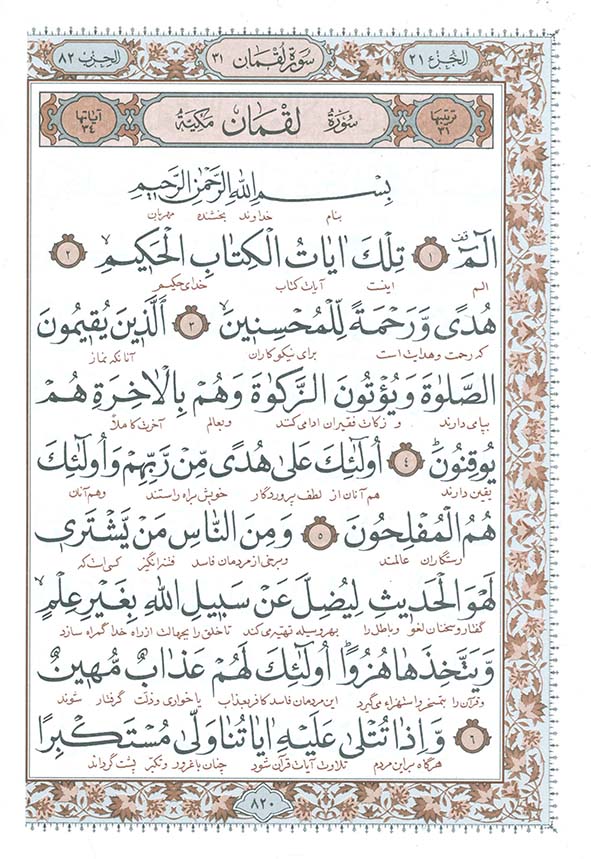 الجزء ٢١ سورة لقمان ٣١ الحزب ٨٢
ترتيبها ٣١ سورة لقمان مكية آياتها ٣٤
بِسْمِ اللهِ الرَّحْمٰنِ الرَّحِيمِ
بنام خداوند بخشنده مهربان
الٓمٓ ﴿١﴾ تِلْكَ اٰيَاتُ الْكِتَابِ الْحَكِيمِ ﴿٢﴾
الم اینست آیات کتاب خدای حکیم
هُدًى وَّرَحْمَةً لِّلْمُحْسِنِينَ ﴿٣﴾ اَلَّذِينَ يُقِيمُونَ
که رحمت و هدایت است برای نیکوکاران آنانکه نماز
الصَّلٰوةَ وَيُؤْتُونَ الزَّكٰوةَ وَهُمْ بِالْاٰخِرَةِ هُمْ
بپای دارند و زکات فقیران ادا می‌کنند و بعالم آخرت کاملاً
يُوقِنُونَ ﴿٤﴾ اُولٰئِكَ عَلٰى هُدًى مِّنْ رَبِّهِمْ وَاُولٰئِكَ
یقین دارند هم آنان از لطف پروردگار خویش براه راستند و هم آنان
هُمُ الْمُفْلِحُونَ ﴿٥﴾ وَمِنَ النَّاسِ مَنْ يَّشْتَرِى
رستگاران عالمند و برخی از مردمان فاسد فتنه‌انگیز کسی است که
لَهْوَ الْحَدِيثِ لِيُضِلَّ عَنْ سَبِيلِ اللهِ بِغَيْرِ عِلْمٍ
گفتار و سخنان لغو و باطل را بهر وسیله تهیه می‌کند تا خلق را بجهالت از راه خدا گمراه سازد
وَّيَتَّخِذَهَا هُزُوًا اُولٰئِكَ لَهُمْ عَذَابٌ مُّهِينٌ
و قرآن را بتمسخر و استهزاء می‌گیرد این مردمان فاسد کافر بعذاب با خواری و ذلت گرفتار شوند
﴿٦﴾ وَاِذَا تُتْلٰى عَلَيْهِ اٰيَاتُنَا وَلّٰى مُسْتَكْبِرًا
هرگاه بر این مردم تلاوت آیات قرآن شود چنان با غرور و تکبّر پشت گرداند
٨٢٠